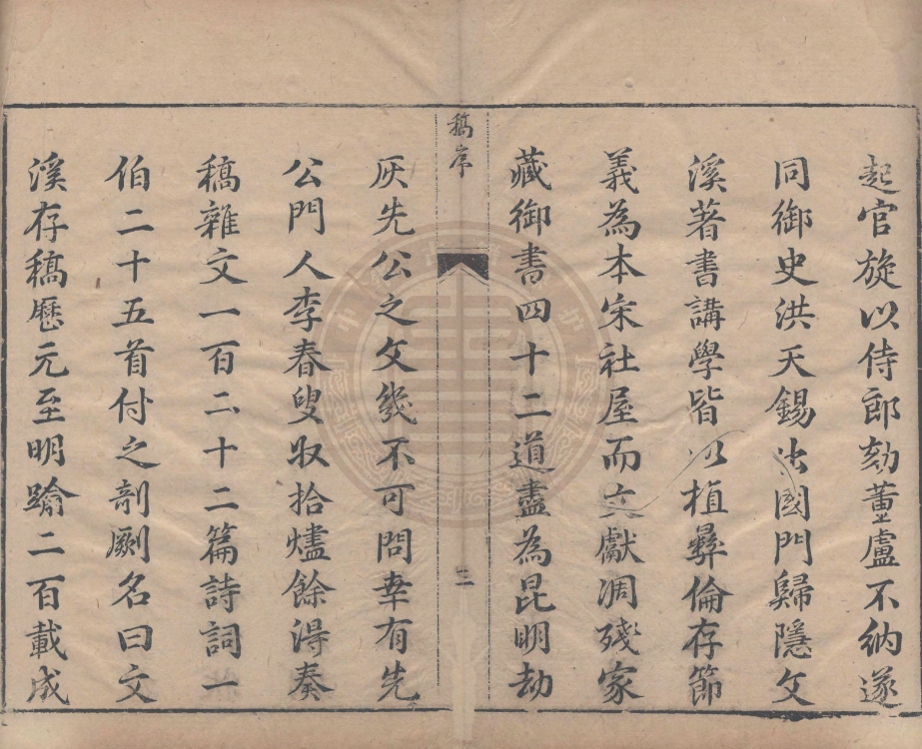 起官旋以侍郎劾董盧不納遂
同御史洪天錫出國門歸隱文
溪著書講學皆以植彝倫存節
義為本宋社屋而文獻凋殘家
藏御書四十二道盡為昆明劫
稿序
三
灰先公之文幾不可問幸有先
公門人李春叟収拾燼餘淂奏
稿雜文一百二十二篇詩詞一
伯二十五首付之剞劂名曰文
溪存稿歷元至明踰二百載成